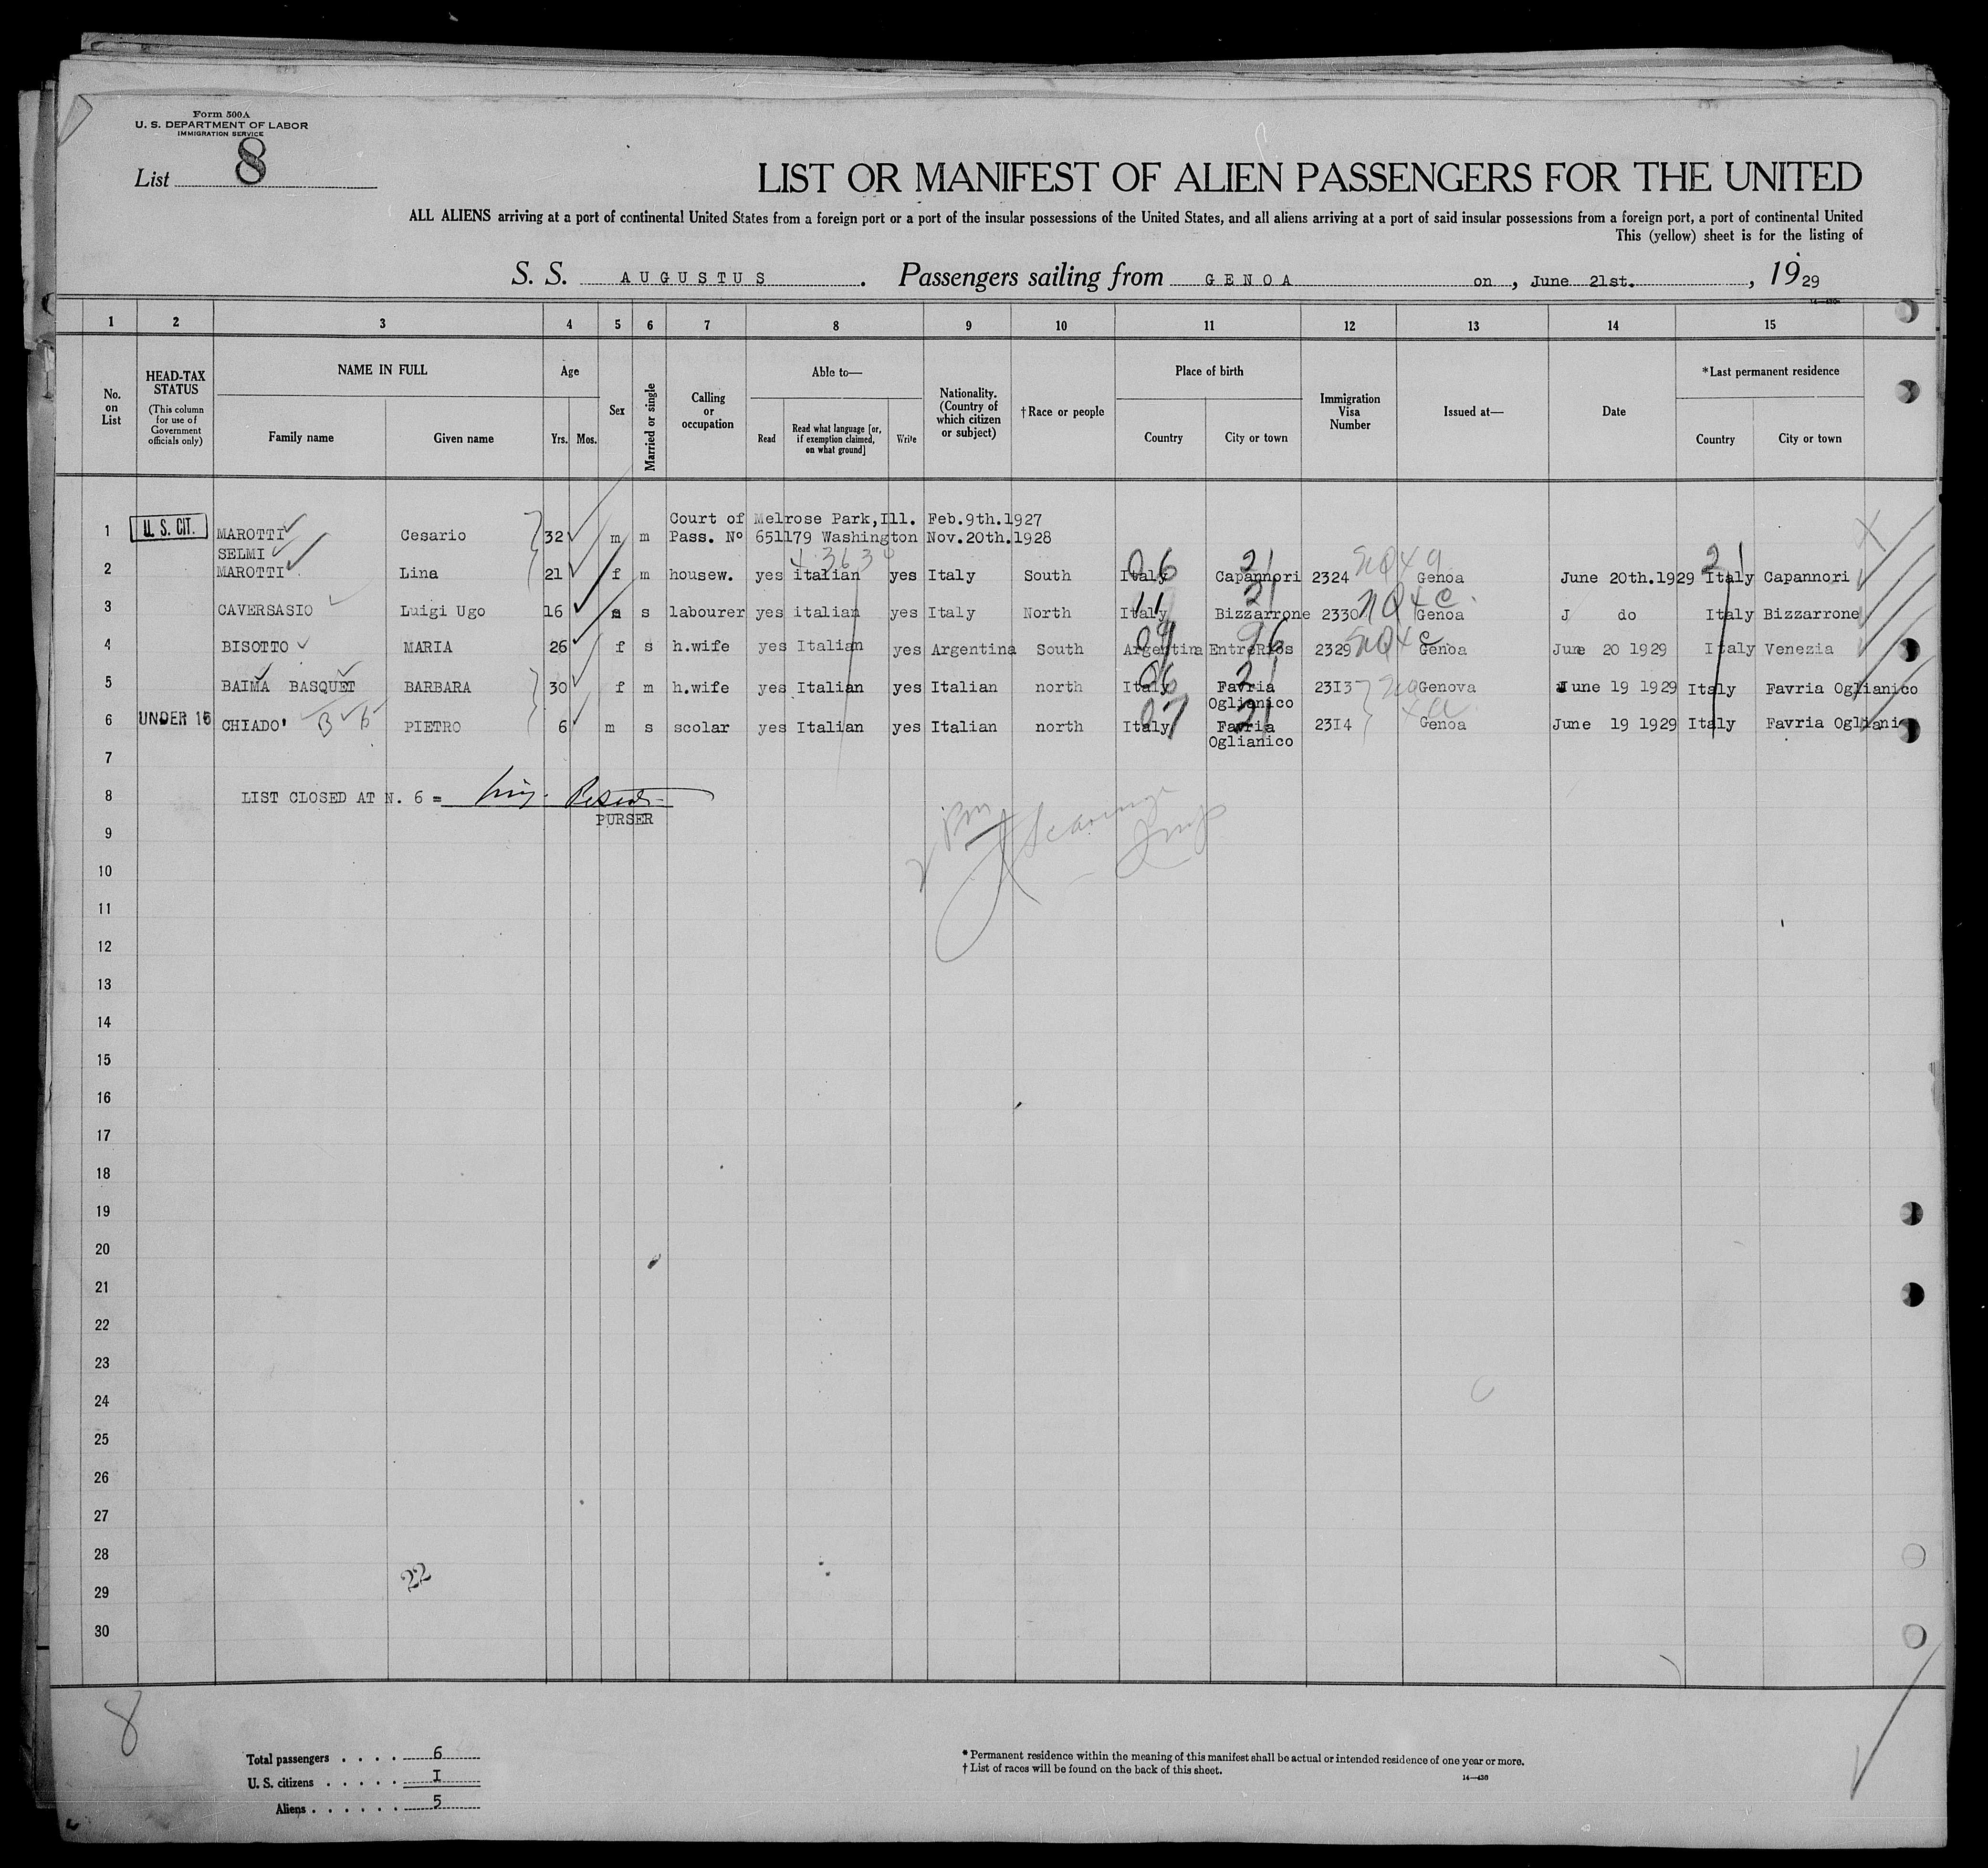 Form 500A
U. S. DEPARTMENT OF LABOR
IMMIGRATION SERVICE
List 8
LIST OR MANIFEST OF ALIEN PASSENGERS FOR THE UNITED
ALL ALIENS arriving at a port of continental United States from a foreign port or a port of the insular possessions of the United States, and all aliens arriving at a port of said insular possessions from a foreign port, a port of continental United
This (yellow) sheet is for the listing of
S. S. AUGUSTUS . Passengers sailing from GENOA on , June 21st. , 1929
1 2 3 4 5 6 7 8 9 10 11 12 13 14 15
No. on List
HEAD-TAX STATUS
(This column for use of Government officials only)
NAME IN FULL
Family name Given name
Age
Yrs. Mos.
Sex
Married or single
Calling or occupation
Able to—
Read
Read what language [or, if exemption claimed, on what ground]
Write
Nationality. (Country of which citizen or subject)
†Race or people
Place of birth
Country City or town
Immigration Visa Number
Issued at—
Date
*Last permanent residence
Country City or town
Court of Melrose Park,Ill. Feb.9th.1927
1 U. S. CIT. MAROTTI Cesario 32 m m Pass. Nº 651179 Washington Nov.20th.1928
SELMI
2 MAROTTI Lina 21 f m housew. yes italian yes Italy South Italy 06 Capannori 21 2324 Genoa June 20th.1929 Italy 21 Capannori
3 CAVERSASIO Luigi Ugo 16 s labourer yes italian yes Italy North Italy 11 Bizzarrone 21 2330 Genoa J do Italy Bizzarrone
4 BISOTTO MARIA 26 f s h.wife yes Italian yes Argentina South Argentina 09 EntreRios 96 2329 Genoa June 20 1929 Italy Venezia
5 BAIMA BASQUET BARBARA 30 f m h.wife yes Italian yes Italian north Italy 06 Favria 21 2313 Genova June 19 1929 Italy Favria Oglianico
Oglianico
6 UNDER 16 CHIADO' B b PIETRO 6 m s scolar yes Italian yes Italian north Italy 07 Favria 21 2314 Genoa June 19 1929 Italy Favria Ogliani
Oglianico
7
8 LIST CLOSED AT N. 6 =
PURSER
9
10
11
12
13
14
15
16
17
18
19
20
21
22
23
24
25
26
27
28
22
29
30
8
Total passengers . . . . 6
U. S. citizens . . . . . I
Aliens . . . . . . 5
* Permanent residence within the meaning of this manifest shall be actual or intended residence of one year or more.
† List of races will be found on the back of this sheet.
14—436